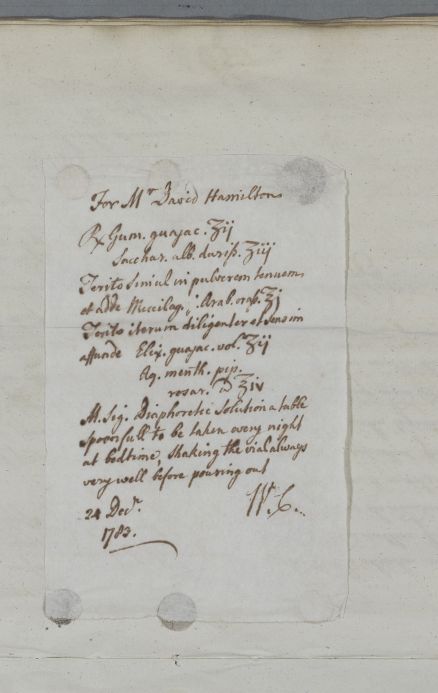 For Mr David Hamilton
℞ Gum. guajac. ʒij
Sacchar. alb. duriss. ʒiij
Terito simul in pulverem tenuem
et adde Mucilag. Arab. crass. ℥j
Terito iterum diligenter et sensim
affunde Elix. guajac. vol. ʒij
Aq. menth. pip.
rosar. a ℥iv
M. Sig. Diaphoretic Solution a table
spoonfull to be taken every night
at bedtime, shaking the vial always
very well before pouring out
24 Decr.
1783.
W. C.